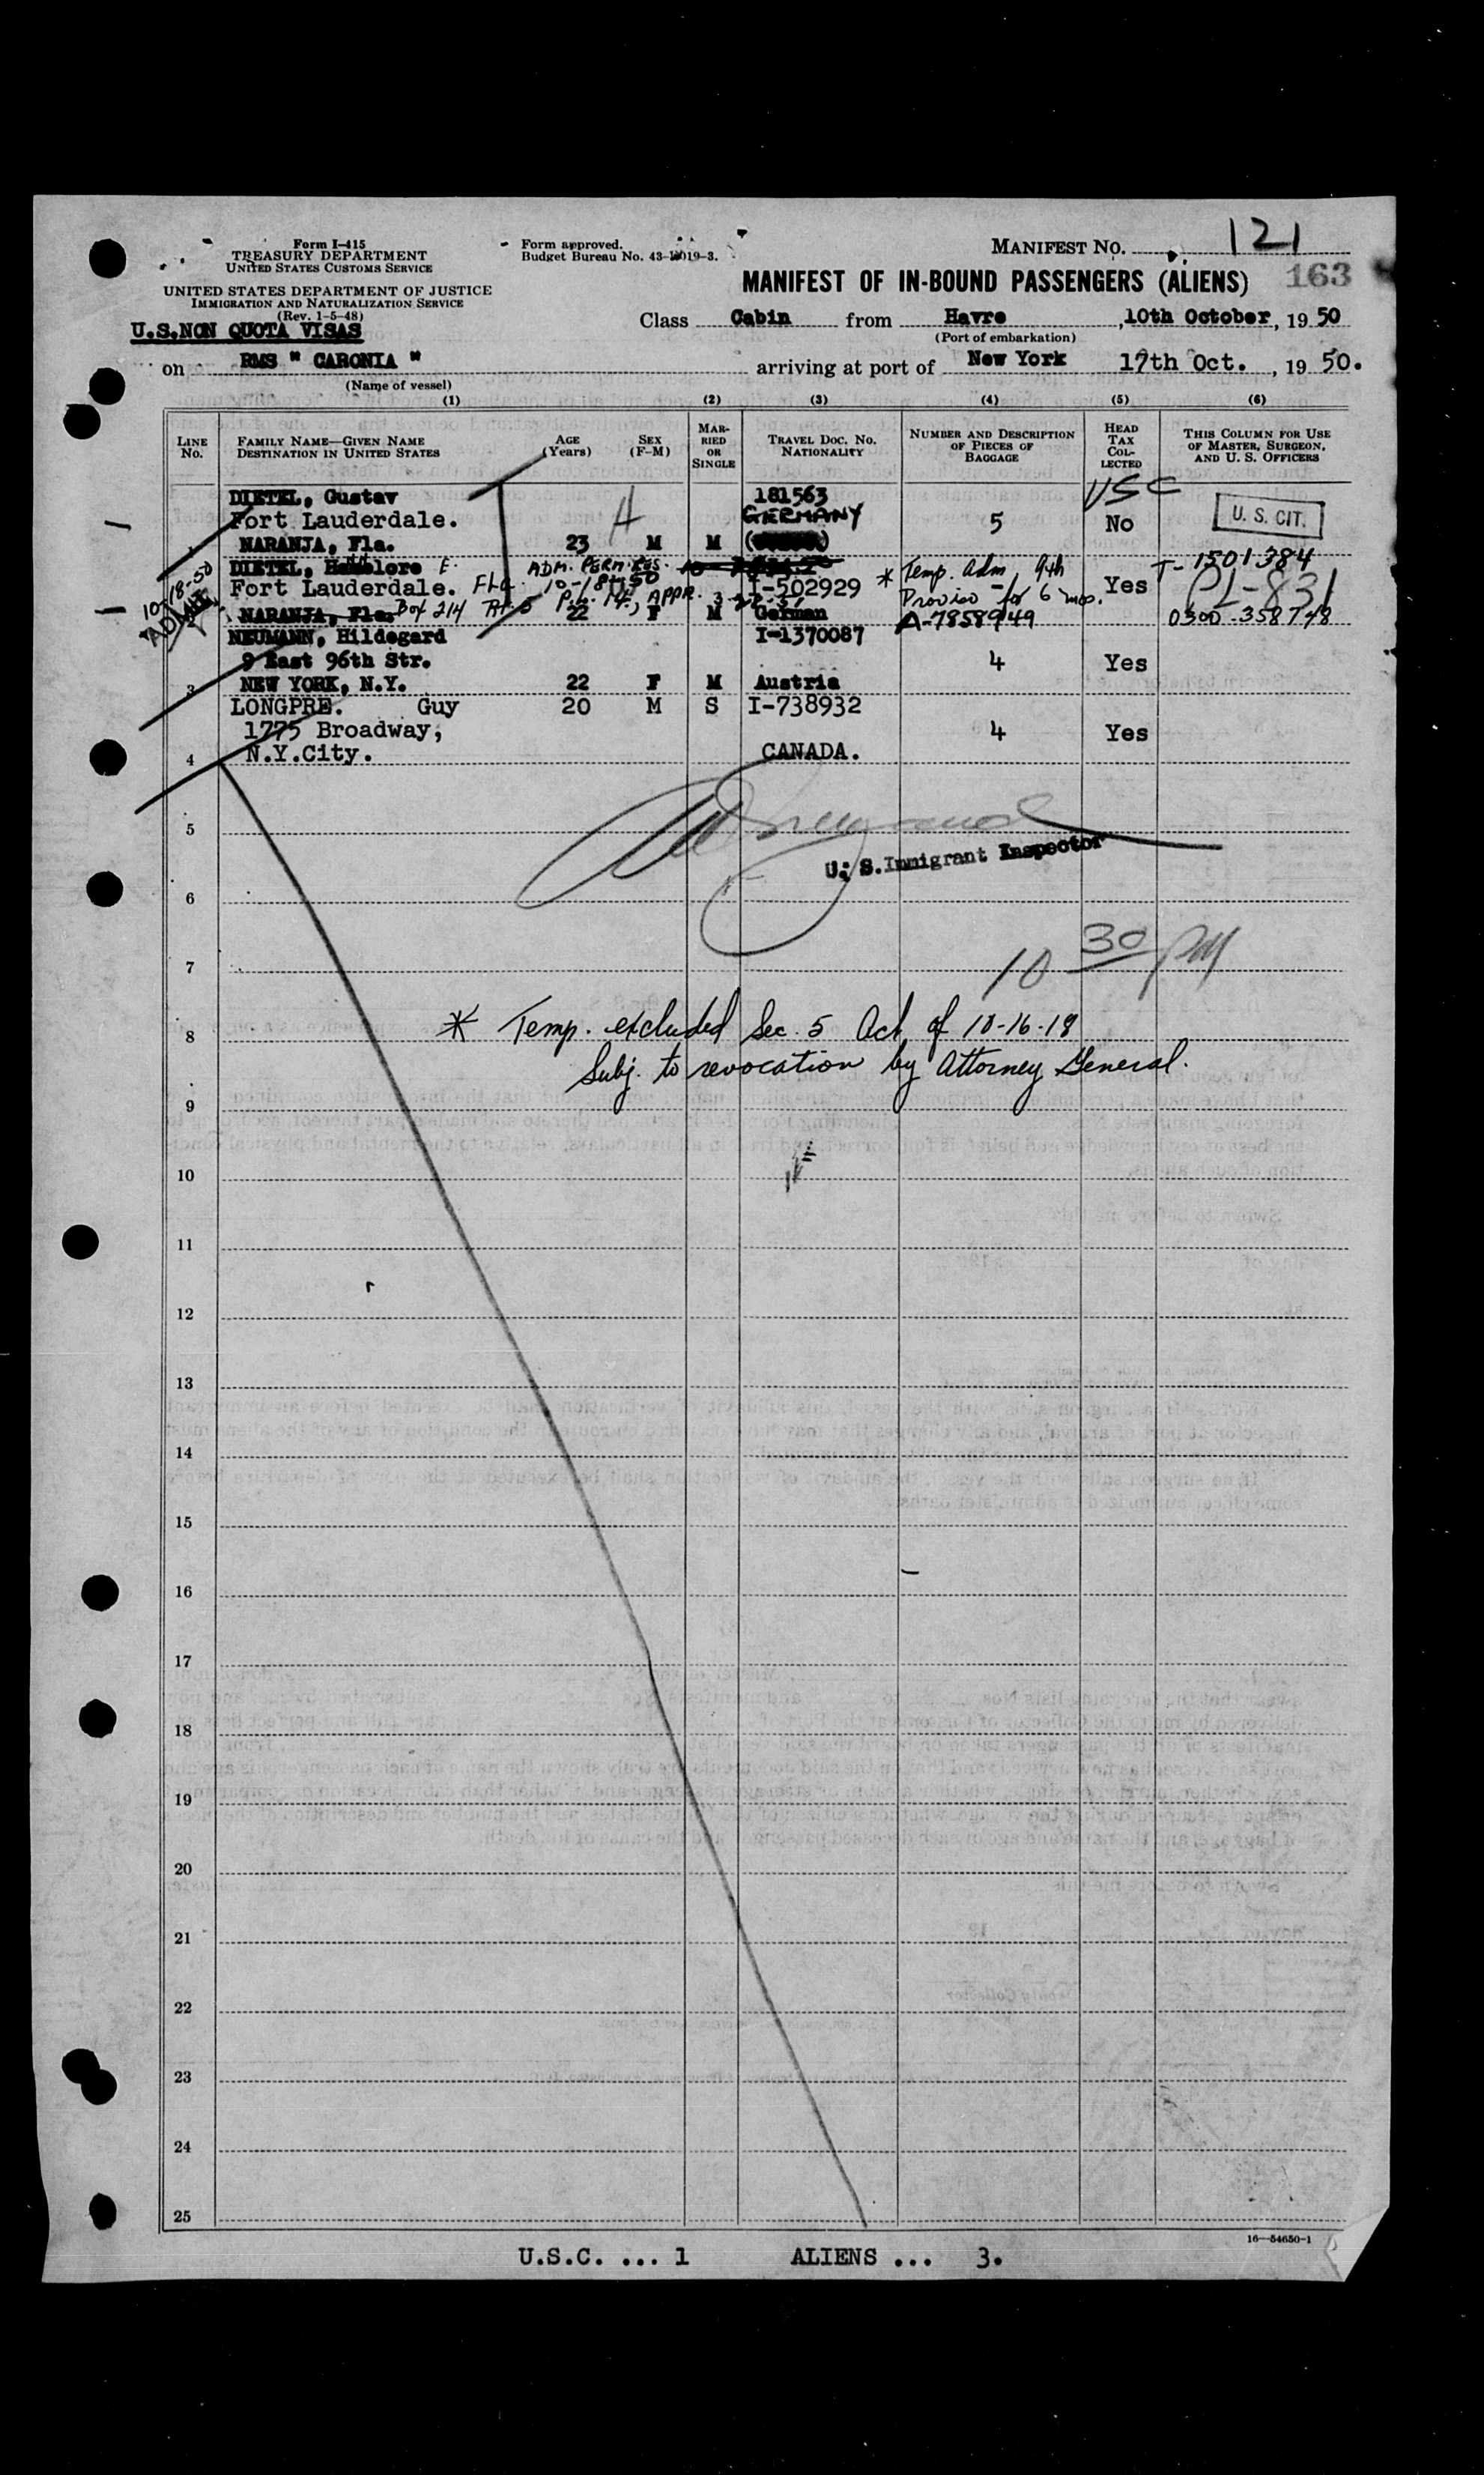 Form I-415
TREASURY DEPARTMENT
UNITED STATES CUSTOMS SERVICE
UNITED STATES DEPARTMENT OF JUSTICE
IMMIGRATION AND NATURALIZATION SERVICE
(Rev. 1-5-48)
U.S.NON QUOTA VISAS
Form approved.
Budget Bureau No. 43-R019-3.
MANIFEST NO. 121
MANIFEST OF IN-BOUND PASSENGERS (ALIENS) 163
Class Cabin from Havre, 10th October, 1950
(Port of embarkation)
on RMS " CARONIA " arriving at port of New York 17th Oct., 1950.
(Name of vessel)
(1) (2) (3) (4) (5) (6)
LINE No. FAMILY NAME—GIVEN NAME DESTINATION IN UNITED STATES AGE (Years) SEX (F-M) MARRIED OR SINGLE TRAVEL DOC. NO. NATIONALITY NUMBER AND DESCRIPTION OF PIECES OF BAGGAGE HEAD TAX COLLECTED THIS COLUMN FOR USE OF MASTER, SURGEON, AND U. S. OFFICERS
DIETEL, Gustav 181563 USC
Fort Lauderdale. H GERMANY 5 No U. S. CIT.
NARANJA, Fla. 23 M M
DIETEL, E. ADM. PERM. RES. Temp. adm. 9th T-1501384
10-18-50 Fort Lauderdale. Fla. 10-18-50 I-502929 * Proviso - for 6 mos. Yes PL-831
NARANJA, Fla. Box 214 Rt. 5 22 F M German A-7858949 0300-358748
NEUMANN, Hildegard I-1370087
9 East 96th Str. 4 Yes
3 NEW YORK, N.Y. 22 F M Austria
LONGPRE. Guy 20 M S I-738932
1775 Broadway, 4 Yes
4 N.Y.City. CANADA.
5
U. S. Immigrant Inspector
6
7 10 30 PM
8 * Temp. excluded Sec. 5 Act of 10-16-18
Subj. to revocation by Attorney General.
9
10
11
12
13
14
15
16
17
18
19
20
21
22
23
24
25
16—54650-1
U.S.C. ... 1 ALIENS ... 3.